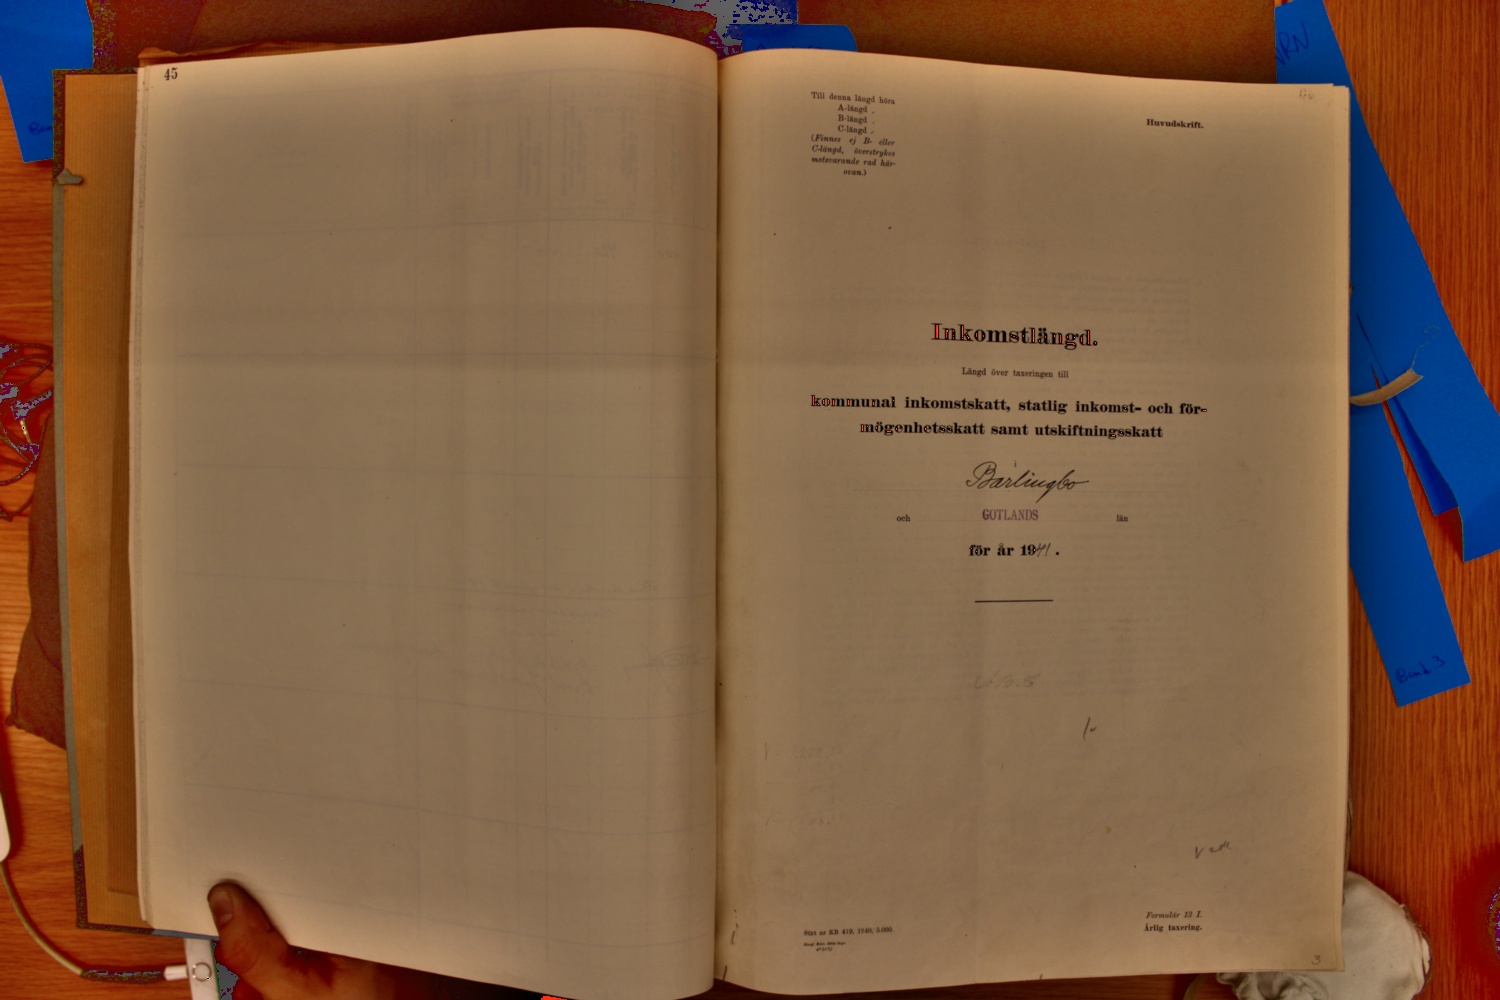 45
Till denna längd höra
A-längd
B-längd
C-längd
(Finnes ej B- eller
C-längd, överstrykes
motsvarande rad här-
ovan.)
Huvudskrift.
Inkomstlängd.
Längd över taxeringen till
kommunal inkomstskatt, statlig inkomst- och för-
mögenhetsskatt samt utskiftningsskatt
Barlingbo
och GOTLANDS län
för år 1941.
Formulär 12 I.
Årlig taxering.
Stat nr KB 419, 1940, 5.000.
3
Band 3